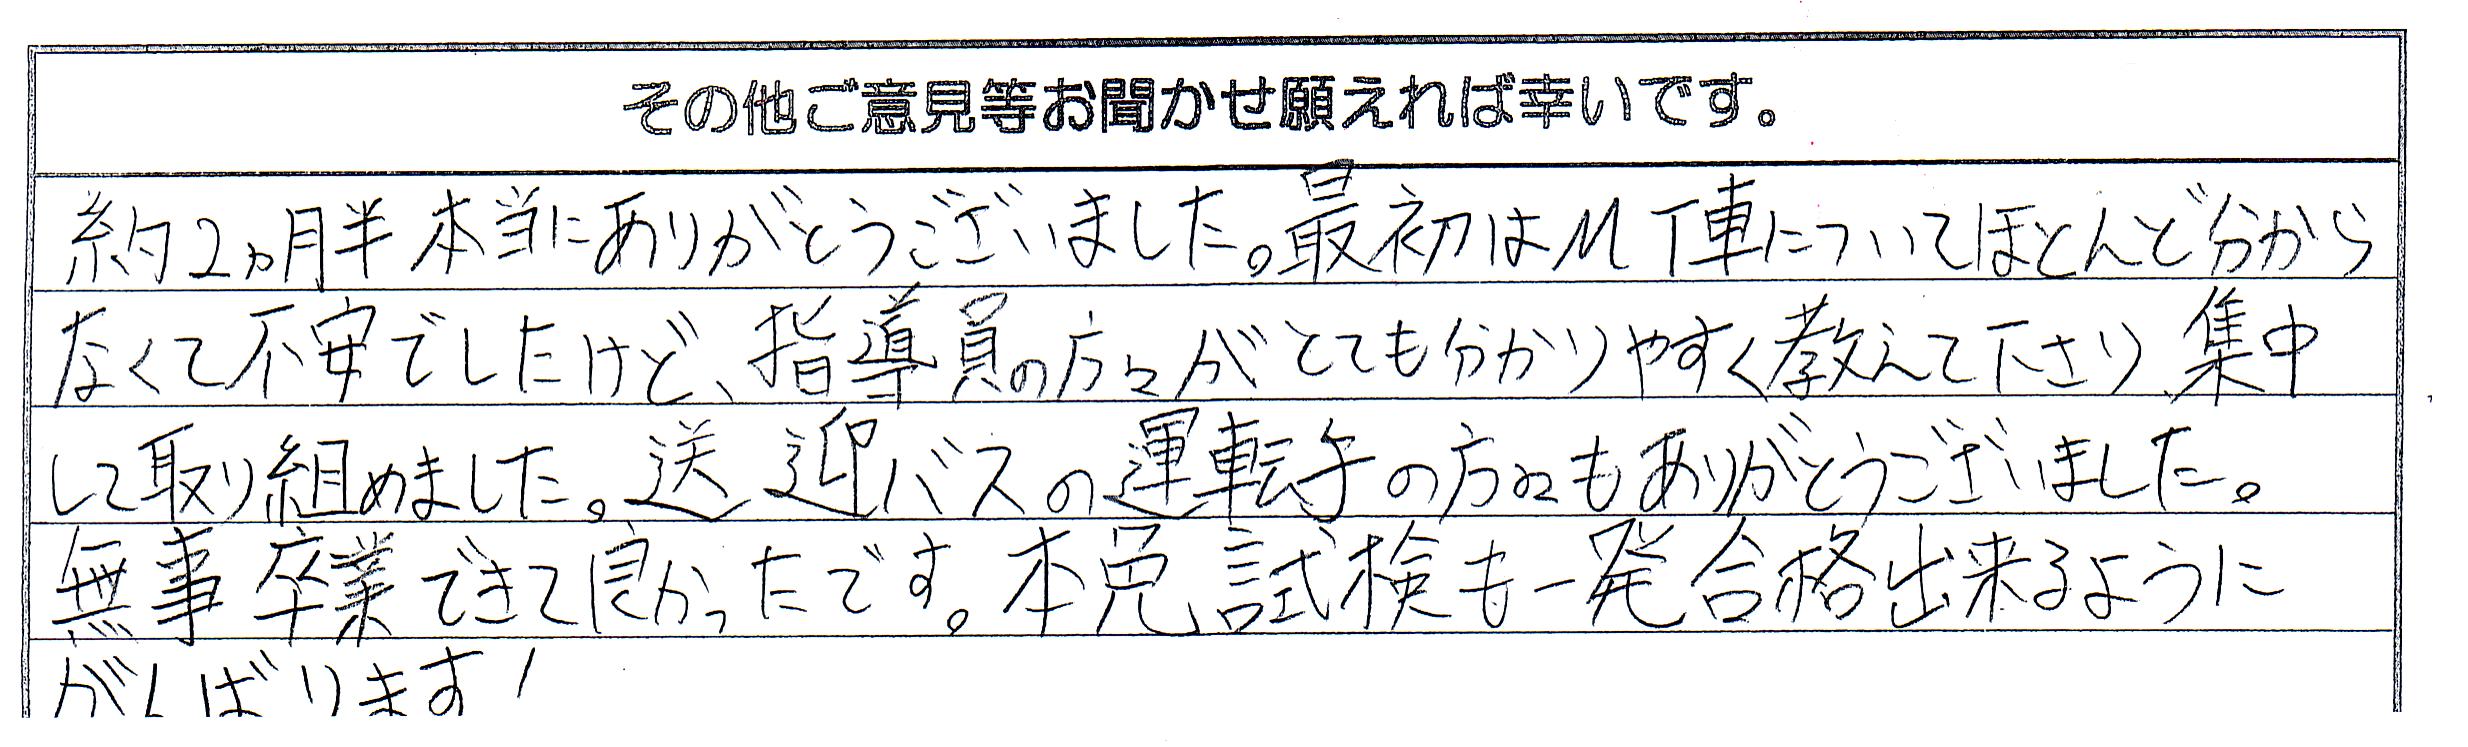 その他ご意見等お聞かせ願えれば幸いです。
約2ヵ月半本当にありがとうございました。最初はMT車についてほとんど分から
なくて不安でしたけど、指導員の方々がとても分かりやすく教えて下さり、集中
して取り組めました。送迎バスの運転手の方々もありがとうございました。
無事卒業できて良かったです。本免試検も一発合格出来るように
がんばります!